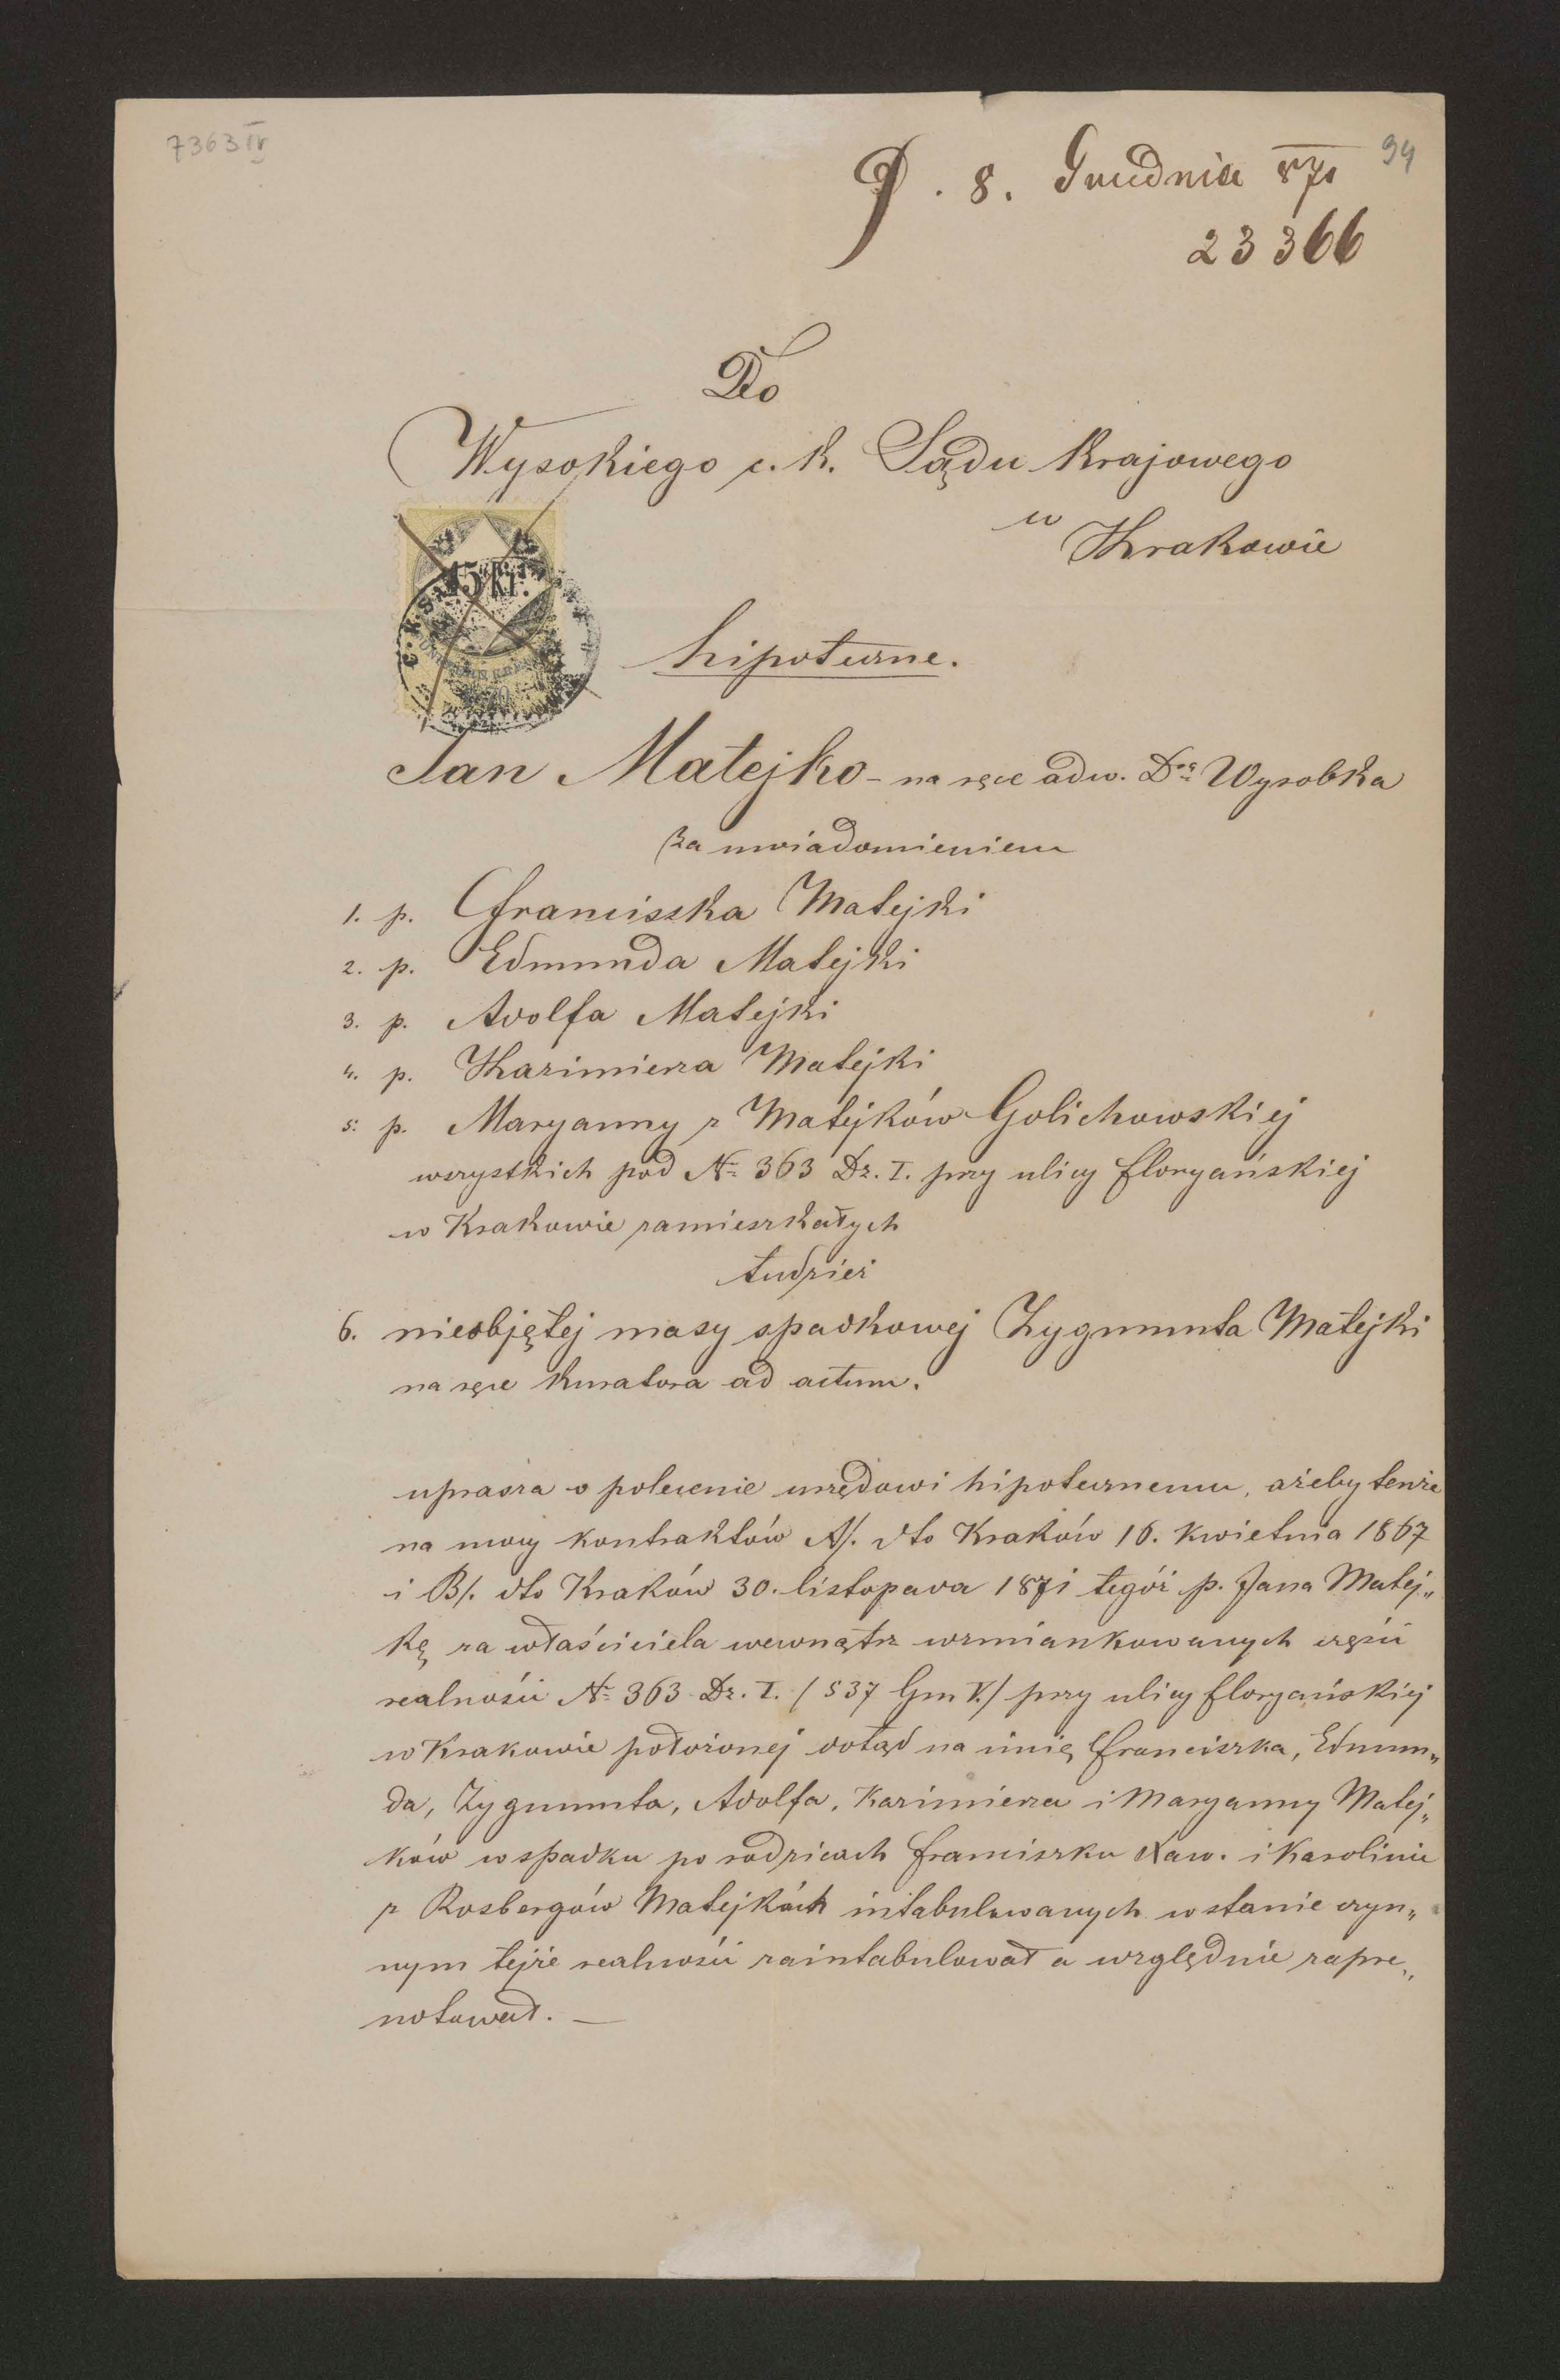 7363 IV
94
P. 8. Grudnia 871
23366
Do
Wysokiego c. k. Sądu Krajowego
w
Krakowie
15 kr.
hipoteczne.
Jan Matejko - na ręce adw. Dra Wyrobka
za uwiadomieniem
1. p. Franciszka Matejki
2. p. Edmunda Matejki
3. p. Adolfa Matejki
4. p. Kazimierza Matejki
5. p. Maryanny z Matejków Golichowskiej
wszystkich pod No 363 Dz. I. przy ulicy Floryańskiej
w Krakowie zamieszkałych
tudzież
6. nieobjętej masy spadkowej Zygmunta Matejki
na ręce Kuratora ad actum.
uprasza o polecenie urzędowi hipotecznemu, ażeby tenże
na mocy kontraktów A/. dto Kraków 16. Kwietnia 1867
i B/. dto Kraków 30. listopada 1871 tegóż p. Jana Matej„
kę za właściciela wewnątrz wzmiankowanych części
realności No 363 Dz. I. / 537 Gm V./ przy ulicy Floryańskiej
w Krakowie położonej dotąd na imię Franciszka, Edmun„
da, Zygmunta, Adolfa, Kazimierza i Maryanny Matej„
ków w spadku po rodzicach Franciszku Xaw. i Karolinie
z Rosbergów Matejkách intabulowanych w stanie czyn„
nym tejże realności zaintabulował a względnie zapre„
notował. —